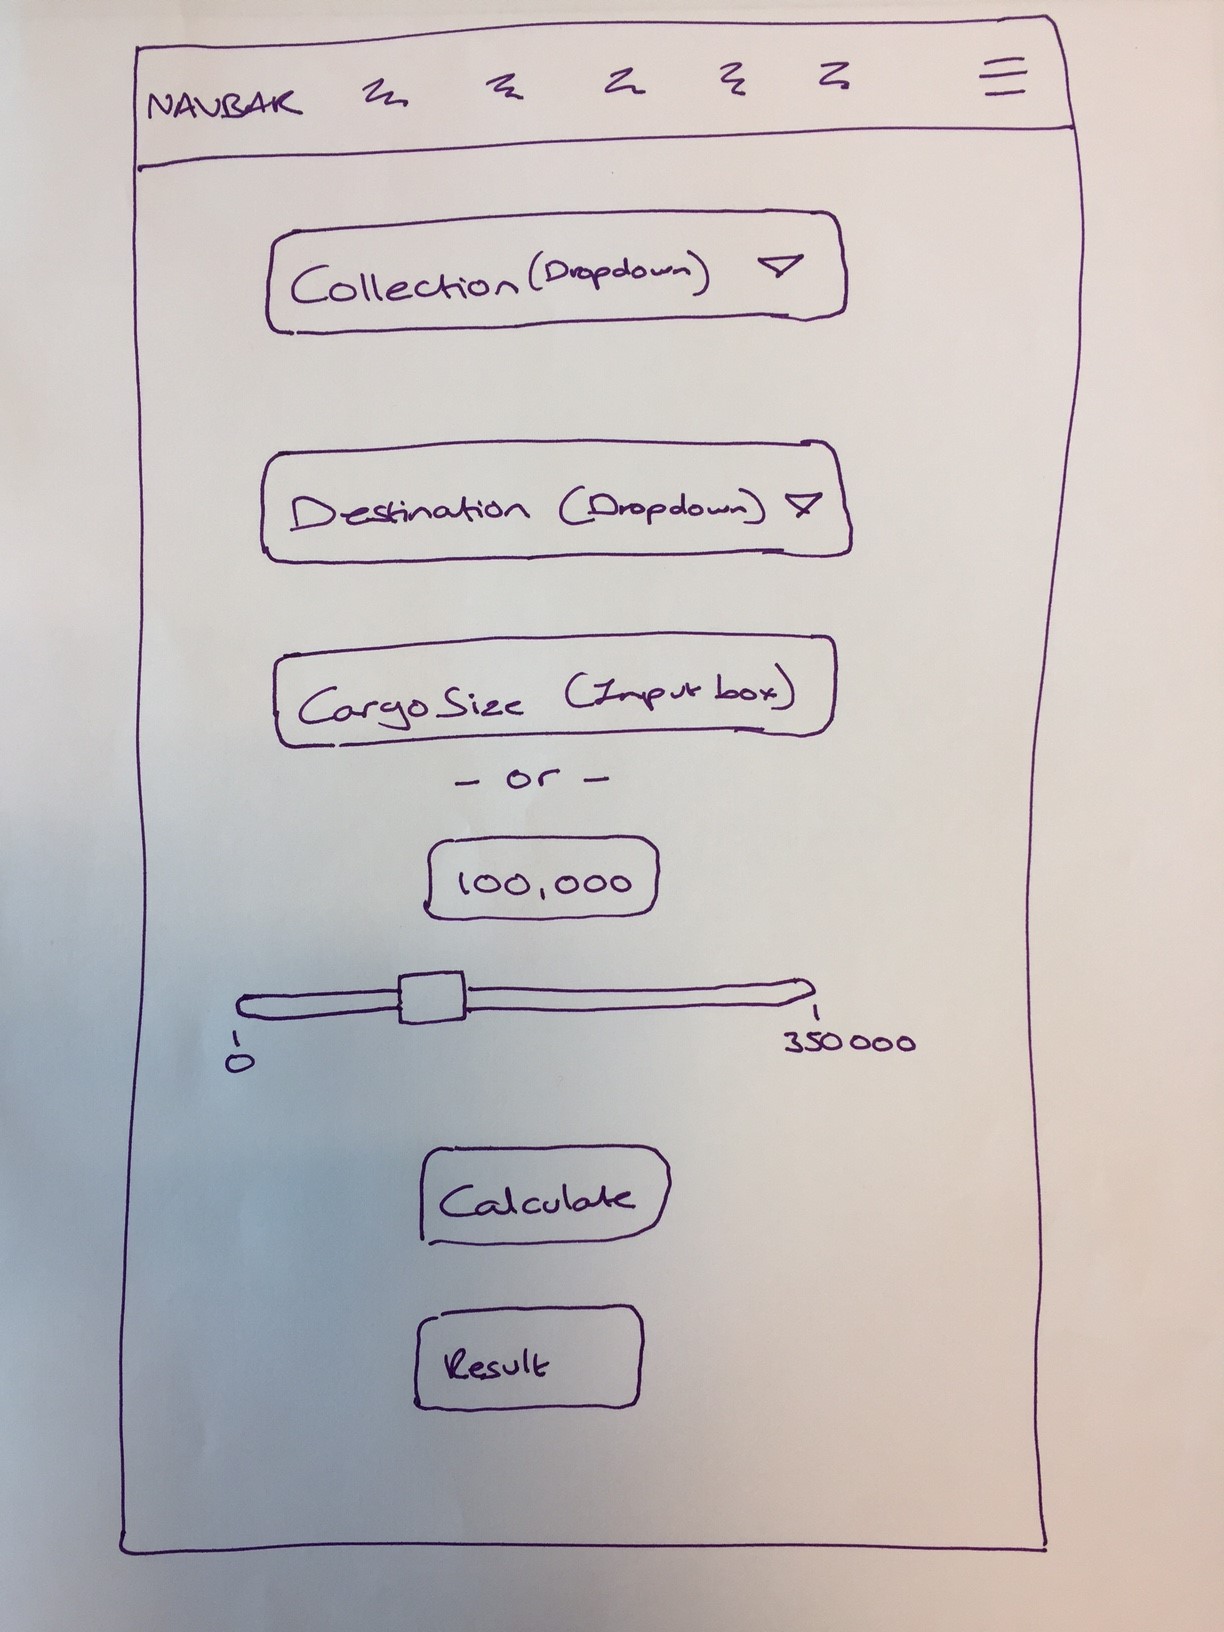 NAVBAR
Collection (Dropdown)
Destination (Dropdown)
Cargo Size (Input box)
- or -
100,000
0
350000
Calculate
Result